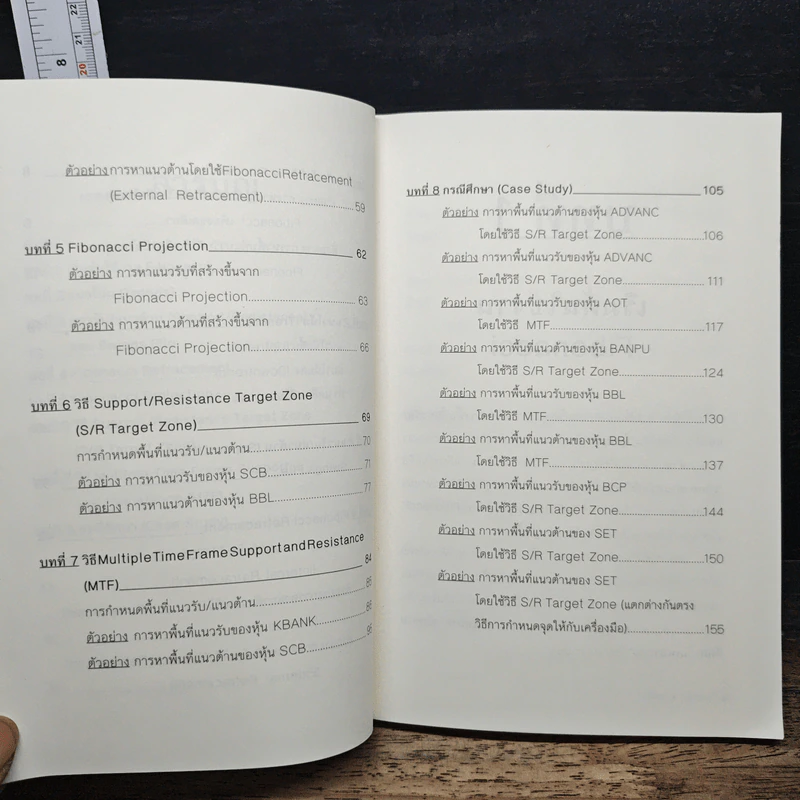 8
22
21
20
ตัวอย่าง การหาแนวต้านโดยใช้ Fibonacci Retracement
(External Retracement)....................59
บทที่ 5 Fibonacci Projection____________________62
ตัวอย่าง การหาแนวรับที่สร้างขึ้นจาก
Fibonacci Projection....................63
ตัวอย่าง การหาแนวต้านที่สร้างขึ้นจาก
Fibonacci Projection....................66
บทที่ 6 วิธี Support/Resistance Target Zone
(S/R Target Zone)____________________69
การกำหนดพื้นที่แนวรับ/แนวต้าน....................70
ตัวอย่าง การหาแนวรับของหุ้น SCB....................71
ตัวอย่าง การหาแนวต้านของหุ้น BBL....................77
บทที่ 7 วิธี Multiple Time Frame Support and Resistance
(MTF)____________________84
การกำหนดพื้นที่แนวรับ/แนวต้าน....................85
ตัวอย่าง การหาพื้นที่แนวรับของหุ้น KBANK....................86
ตัวอย่าง การหาพื้นที่แนวต้านของหุ้น SCB....................
บทที่ 8 กรณีศึกษา (Case Study)____________________105
ตัวอย่าง การหาพื้นที่แนวต้านของหุ้น ADVANC
โดยใช้วิธี S/R Target Zone....................106
ตัวอย่าง การหาพื้นที่แนวรับของหุ้น ADVANC
โดยใช้วิธี S/R Target Zone....................111
ตัวอย่าง การหาพื้นที่แนวรับของหุ้น AOT
โดยใช้วิธี MTF....................117
ตัวอย่าง การหาพื้นที่แนวต้านของหุ้น BANPU
โดยใช้วิธี S/R Target Zone....................124
ตัวอย่าง การหาพื้นที่แนวรับของหุ้น BBL
โดยใช้วิธี MTF....................130
ตัวอย่าง การหาพื้นที่แนวต้านของหุ้น BBL
โดยใช้วิธี MTF....................137
ตัวอย่าง การหาพื้นที่แนวรับของหุ้น BCP
โดยใช้วิธี S/R Target Zone....................144
ตัวอย่าง การหาพื้นที่แนวต้านของ SET
โดยใช้วิธี S/R Target Zone....................150
ตัวอย่าง การหาพื้นที่แนวต้านของ SET
โดยใช้วิธี S/R Target Zone (แตกต่างกันตรง
วิธีการกำหนดจุดให้กับเครื่องมือ)....................155